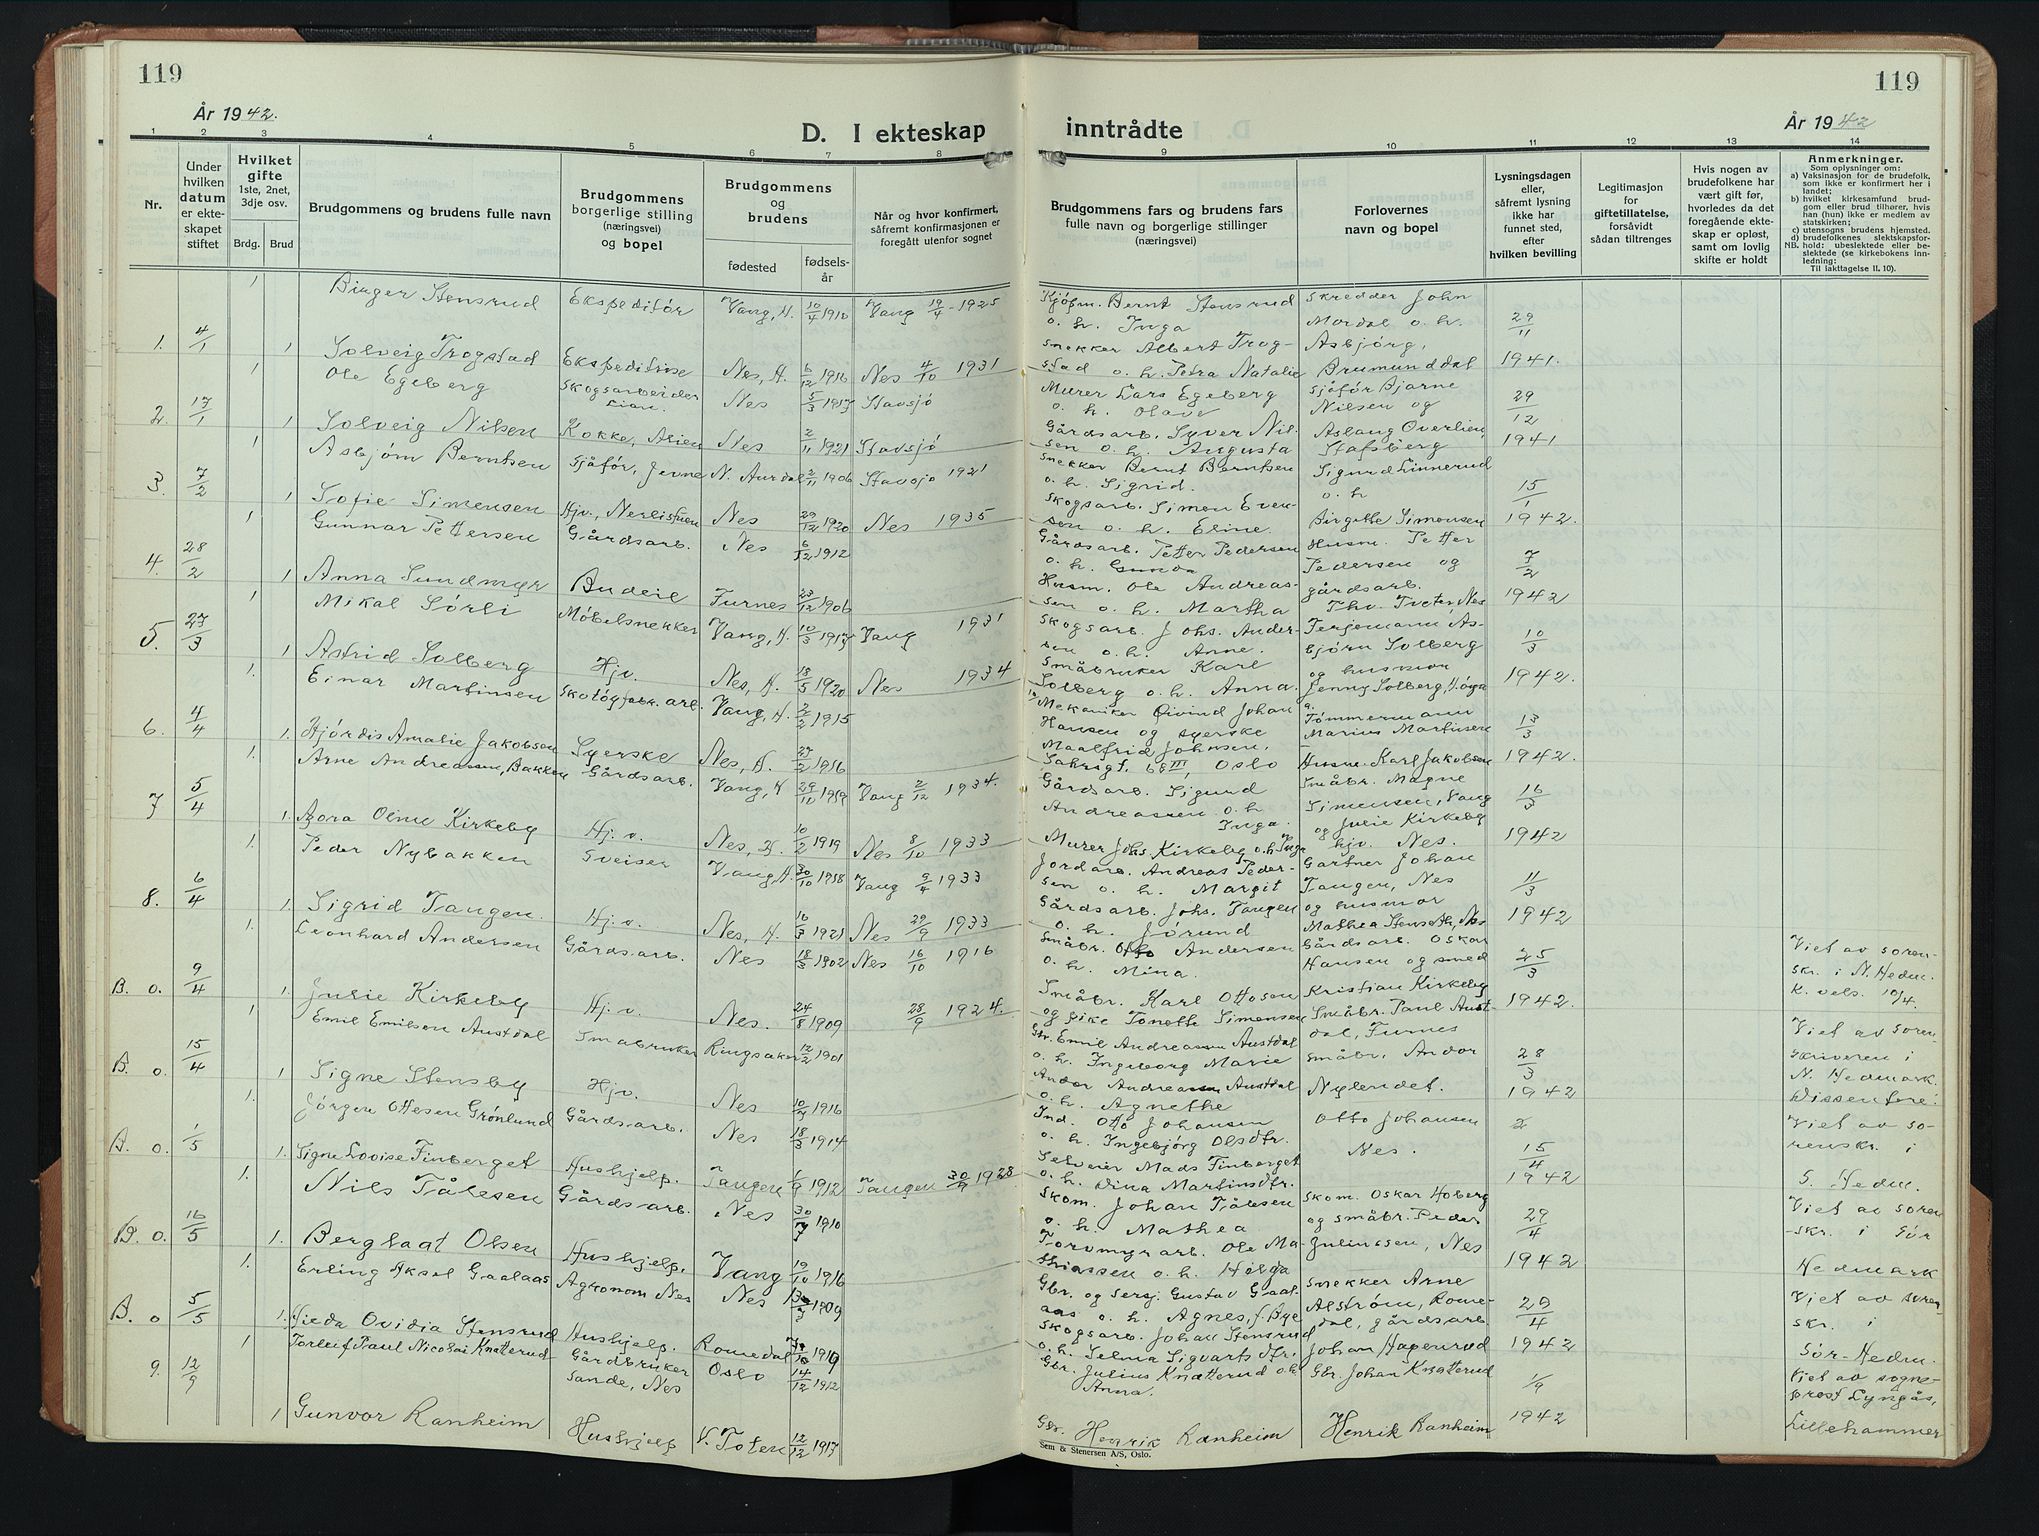 119
År 1942.
D. I ekteskap
1 2 3 4 5 6 7 8
Nr.
Under hvilken datum er ekteskapet stiftet
Hvilket gifte
1ste, 2net, 3dje osv.
Brdg. Brud
Brudgommens og brudens fulle navn
Brudgommens borgerlige stilling (næringsvei) og bopel
Brudgommens og brudens
fødested fødselsår
Når og hvor konfirmert, såfremt konfirmasjonen er foregått utenfor sognet
1 Birger Stensrud Ekspeditør Vang, H. 10/4 1910 Vang 19/4 - 1925
1. 4/1
1 Solveig Trogstad Ekspeditrise Nes, H. 6/12 1916 Nes 4/10 1931
1 Ole Egeberg Skogsarbeider Lien. Nes 5/3 1917 Stavsjø
2. 17/1
1 Solveig Nilsen Kokke, Nes 2/11 1921 Stavsjø
1 Asbjørn Berntsen Sjåfør, Jevne N. Aurdal 2/11 1906 Stavsjø 1921
3. 7/2
1 Sofie Simensen Hjv., Nes 29/12 1920 Nes 1935
1 Gunnar Pettersen Gårdsarb. Nes 6/12 1912
4. 28/2
1 Anna Sundmyr Budeie Furnes 23/12 1906
1 Mikal Sørli Møbelsnekker Vang, H. 10/3 1917 Vang 1931
5. 27/3
1 Astrid Solberg Hjv. Nes, H. 18/5 1920 Nes 1934
1. Einar Martinsen Skotøyfabr. arb. Vang, H. 2/2 1915
6. 4/4
1. Hjørdis Amalie Jakobsen Syerske Nes, H. 27/2 1916
1. Arne Andreassen, Bakken Gårdsarb. Vang, H 29/10 1919 Vang 2/12 1934.
7 5/4
1. Bora Oline Kirkeby Hj.v. Nes, H. 10/2 1919 Nes 8/10 1933
1. Peder Nybakken Sveiser Vang, H. 30/10 1918 Vang 9/4 1933
8. 6/4
1. Sigrid Tangen. Hj.v. Nes, H. 16/3 1921 Nes 29/9 1933
1. Leonhard Andersen Gårdsarb. Nes 18/3 1902 Nes 16/10 1916
B. o. 9/4
1. Julie Kirkeby Hj.v. Nes. 24/8 1909 28/9 1924.
1 Emil Emilsen Austdal Småbruker Ringsaker 12/2 1901
B. o. 15/4
1 Signe Stensby Hjv. Nes 10/7 1916
1. Jørgen Ottesen Grønlund Gårdsarb. Nes 18/3 1914
B. o. 1/5
1. Signe Lovise Finberget Hushjelp. Tangen 1/9 1912 Tangen 30/9 1928
1. Nils Tålesen Gårdsarb. Nes 30/7 1910
B. o. 16/5
1. Bergljot Olsen Hushjelp. Vang 19/10 1916
1. Erling Aksel Gaalaas Agronom Nes Nes 1909
B. o 5/5
1. Ovidia Stensrud Hushjelp. Romedal 1919
1 Torleif Paul Nicolai Knatterud Gårdbruker Sande, Nes Oslo 14/12 1912
9. 12/9
1 Gunvor Ranheim Hushjelp V. Toten 12/12 1917
119
År 1942
inntrådte
9 10 11 12 13 14
Brudgommens fars og brudens fars fulle navn og borgerlige stillinger (næringsvei)
Forlovernes navn og bopel
Lysningsdagen eller, såfremt lysning ikke har funnet sted, efter hvilken bevilling
Legitimasjon for giftetillatelse, forsåvidt sådan tiltrenges
Hvis nogen av brudefolkene har vært gift før, hvorledes da det foregående ekteskap er opløst, samt om lovlig skifte er holdt
Anmerkninger.
Som oplysninger om:
a) Vaksinasjon for de brudefolk, som ikke er konfirmert her i landet;
b) hvilket kirkesamfund brudgom eller brud tilhører, hvis han (hun) ikke er medlem av statskirken;
c) utensogns brudens hjemsted.
d) brudefolkenes slektskapsforhold: ubeslektede eller beslektede (se kirkebokens innledning:
NB.
Til iakttagelse II. 10).
Kjøpm. Bernt Stensrud Skredder John
o. h. Inga Mordal o. h. 29/11
Snekker Albert Trog- Asbjørg,
stad o. h. Petra Natalie Brumunddal 1941.
Murer Lars Egeberg Sjåfør Bjarne
o. h. Olave Nilsen og 29/12
Gårdsarb. Syver Nil- Aslaug Overlien,
sen o. h. Augusta Stafsberg 1941
Snekker Bernt Berntsen Sigurd Linnerud
o. h. Sigrid. o. h 15/1
Skogsarb. Simen Even-
sen o. h. Eline. Birgitte Simensen 1942.
Gårdsarb. Petter Pedersen Husm. Petter
o. h. Gunda Pedersen og 7/2
Husm. Ole Andreas- gårdsarb.
sen o. h. Martha Thv. Tveter, Nes 1942
Skogsarb. Johs. Ander- As-
sen o. h. Anne. bjørn Solberg 10/3
Småbruker Karl og husmor
Solberg o. h. Anna. Jenny Solberg, 1942.
Mekaniker Øivind Johan Tømmermann
Hansen og syerske Marius Martinsen 13/3
Maalfrid Johnsen,
Oslo Husm. Karl Jakobsen 1942
Gårdsarb. Sigurd Småbr. Magne
Andreassen o. h Simensen, Vang 16/3
Inga. og Julie Kirkeby
Murer Johs. Kirkeby o. h. Inga hjv. Nes. 1942
Jordarb. Andreas Peder- Gartner Johan
sen o. h. Margit Tangen, Nes 11/3
Gårdsarb. Johs. Tangen og husmor
o. h. Jørund Mathea Stenseth, Nes 1942
Småbr. Otto Andersen Gårdsarb. Oskar
o. h. Mina. Hansen og smed 25/3
Småbr. Karl Ottosen Kristian Kirkeby
og Tonette Simensen Småbr. Paul Aust- 1942.
Viet av soren-
skr. i N. Hedm.
k. vels. 10/4.
Gbr. Emil Andreassen Austdal dal, Furnes
o. h. Ingeborg Marie Småbr. Andor 28/3
Andor Andreassen Austdal Nylendet. 1942
o. h. Agnethe
Viet av soren-
skriveren i
N. Hedmark.
Dissentere:
Ind. Otto Johansen Otto Johansen 2
o. h. Ingebjørg Olsdtr. Nes. 15/4
Selveier Mads Finberget
o. h. Dina Martinsdtr. 1942
Viet av so-
renskr. i
S. Hedm.
Skom. Johan Tålesen Skom. Oskar Hoberg
o. h. Mathea og småbr. Peder 29/4
Torvmyrarb. Ole Ma- Juliussen, Nes
thiassen o. h. Helga 1942
Viet av soren
skr. i Sør
Hedmark
Gbr. og Gustav Gaal- Snekker Arne
aas o. h. Agnes, f. Bye Alstrøm, Rome- 29/4
Skogsarb. Johan Stensrud dal, gårdsarb.
o. h. Selma Sigvartsdtr. Johan Hagenrud 1942
Viet av soren
skr. i
Sør-Hedm.
Gbr. Julius Knatterud o. h. Gbr. Johan Knatterud
Anna. 1/9
Gbr. Henrik Ranheim Henrik Ranheim 1942
Viet av sogne-
prest Lyngås,
Lillehammer
Sem & Stenersen A/S, Oslo.